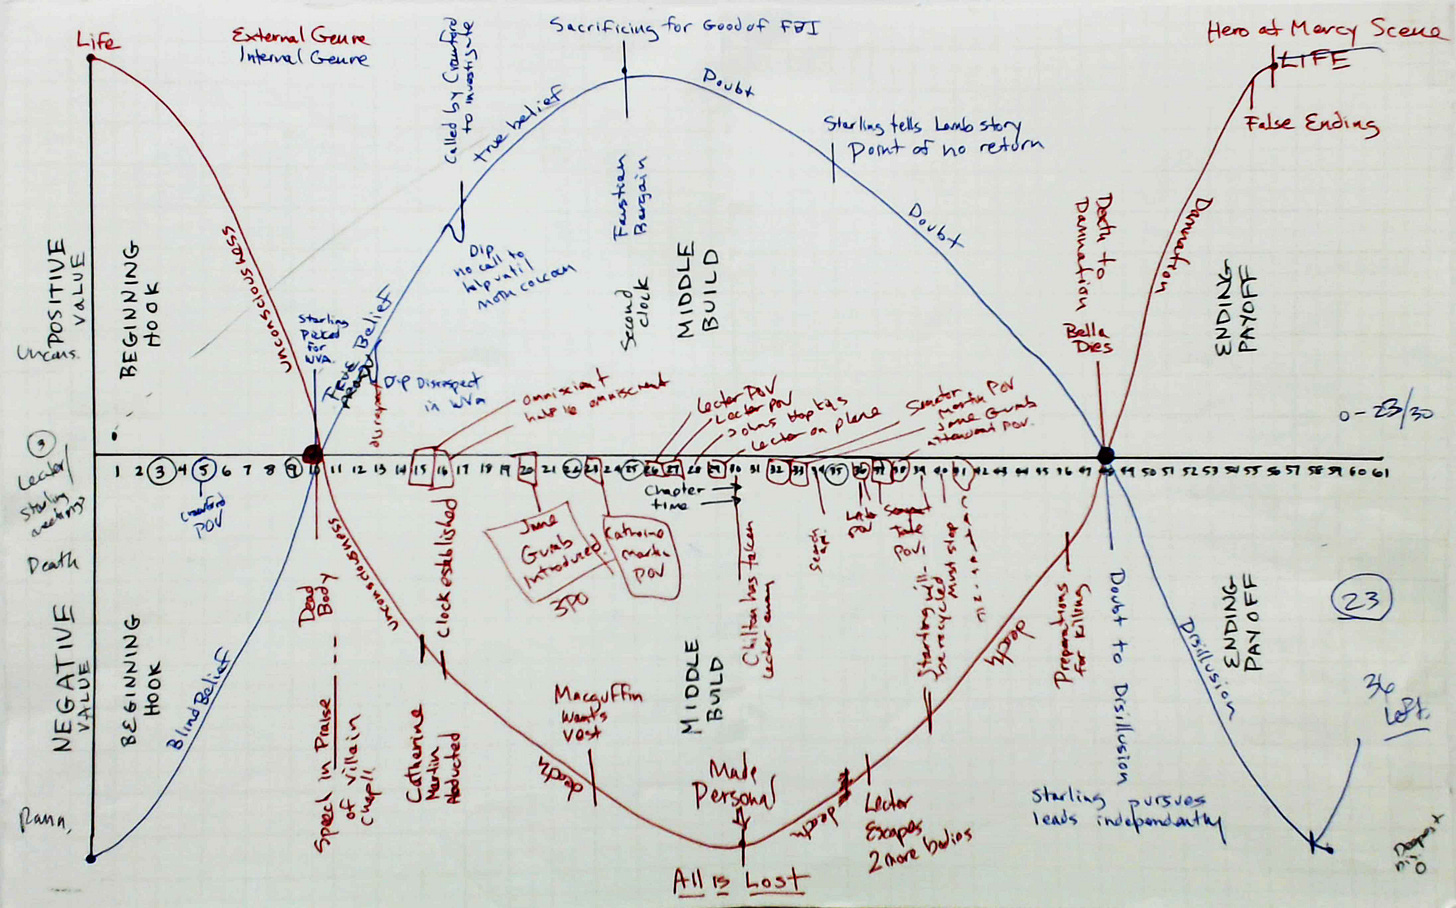 Life
External Genre
Internal Genre
Called by Crawford
to investigate
Sacrificing for Good of FBI
Hero at Mercy Scene
LIFE
False Ending
true belief
Doubt
Starling tells Lamb story
Point of no return
Doubt
Faustian
Bargain
Second
clock
MIDDLE
BUILD
Dip
no call to
help until
moth cocoon
unconsciousness
POSITIVE
VALUE
BEGINNING
HOOK
Starling
Picked
for
WVA.
TRUE Belief
Dip Disrespect
in WVa
disrespect
omniscient
omniscient
Lecter POV
Lecter POV
Johns Hopkins
Lecter on plane
Senator
Martin POV
Jame Gumb
attendant POV.
Death to
Damnation
Bella
Dies
Damnation
ENDING
PAYOFF
0-23/30
Uncons.
3
Lecter/
Starling
meetings
1 2 3 4 5 6 7 8 9 10 11 12 13 14 15 16 17 18 19 20 21 22 23 24 25 26 27 28 29 30 31 32 33 34 35 36 37 38 39 40 41 42 43 44 45 46 47 48 49 50 51 52 53 54 55 56 57 58 59 60 61
Crawford
POV
Chapter
time
Death
NEGATIVE
VALUE
BEGINNING
HOOK
Blind Belief
Dead
Body
Speech in Praise
of Villain
Chap 11
unconsciousness
Clock established
Catherine
Martin
Abducted
Jame
Gumb
Introduced
3PO
Catherine
Martin
POV
Macguffin
wants
vest
death
MIDDLE
BUILD
Chilton has taken
Lecter away
Made
Personal
All is Lost
death
Lecter
Escapes
2 more bodies
Starling will
be recycled
Must stop
death
Preparations
for killing
Doubt to Disillusion
Starling pursues
leads independently
Disillusion
ENDING
PAYOFF
23
36
Left
Damn.